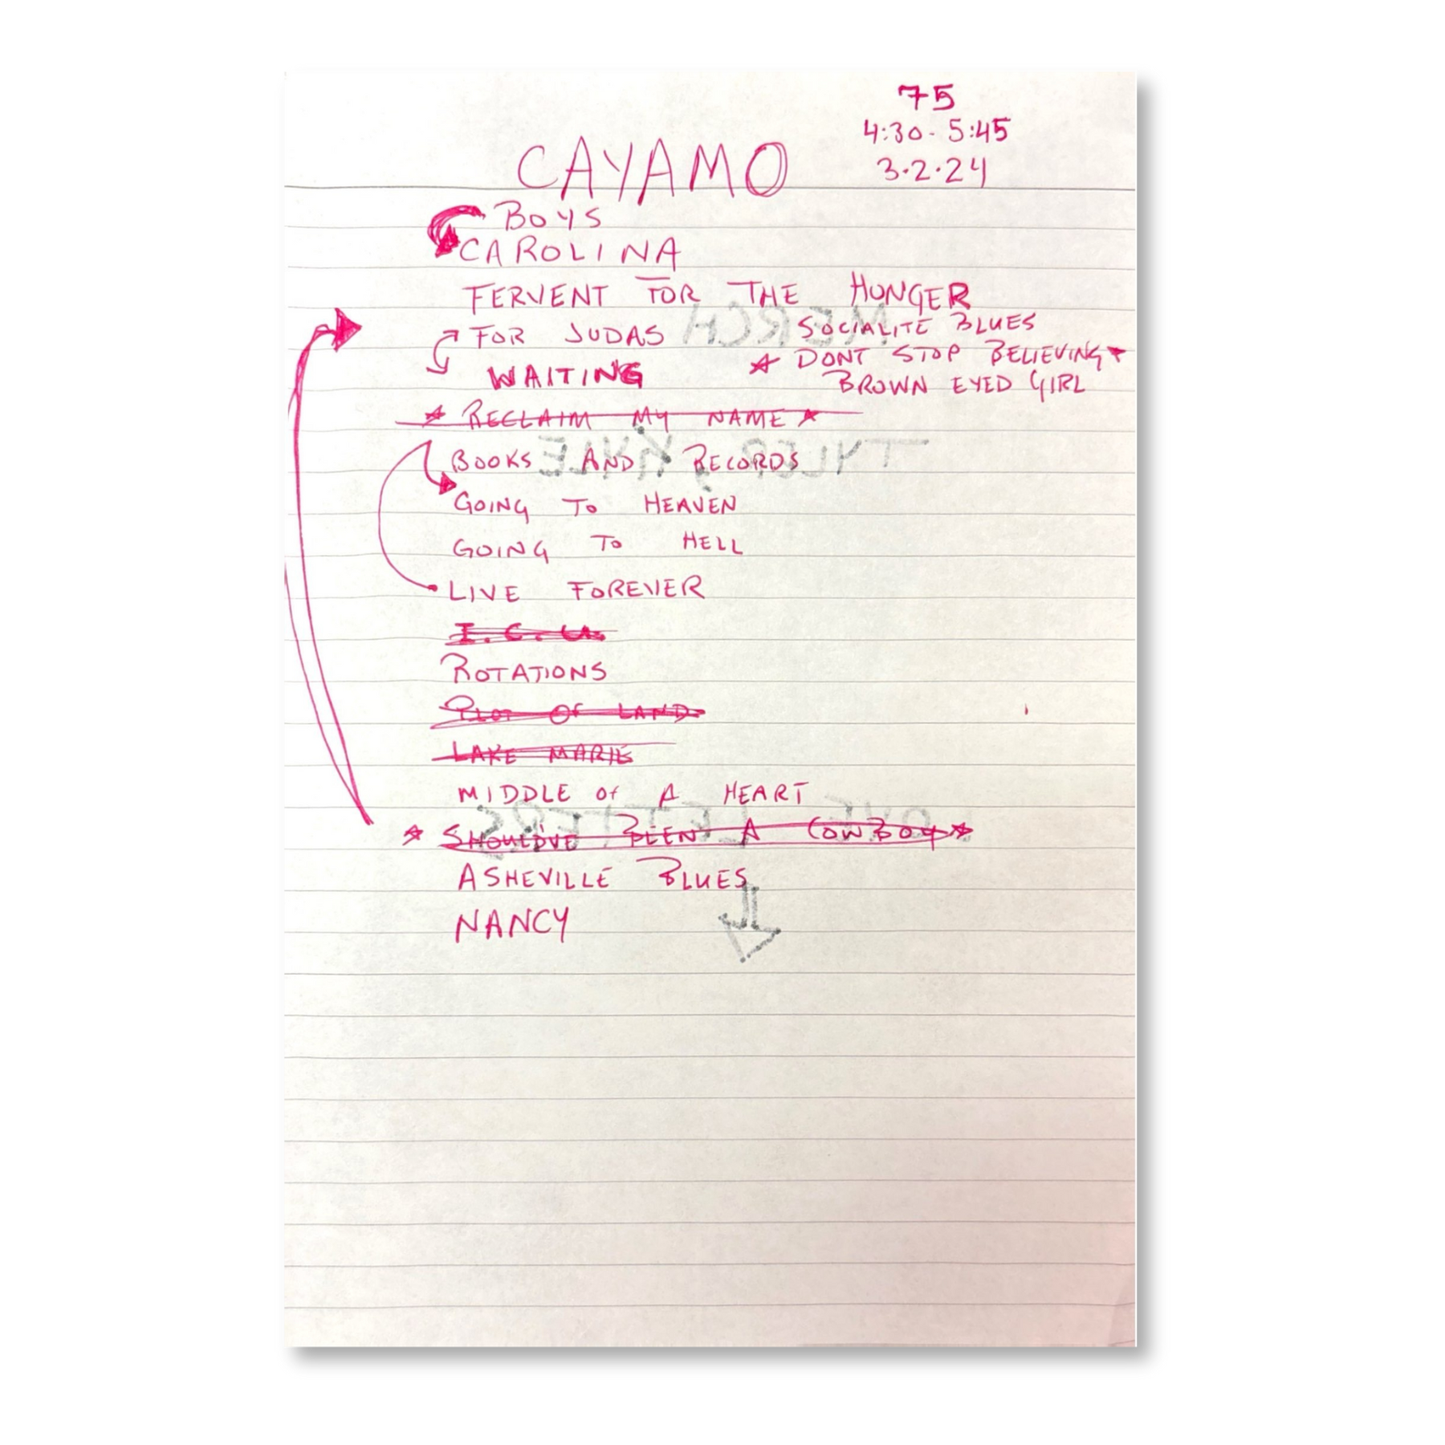 75
4:30 - 5:45
3.2.24
CAYAMO
BOYS
CAROLINA
FERVENT FOR THE HUNGER
FOR JUDAS
SOCIALITE BLUES
DONT STOP BELIEVING
WAITING
BROWN EYED GIRL
RECLAIM MY NAME
BOOKS AND RECORDS
TYLER, KYLE
MERCH
GOING TO HEAVEN
GOING TO HELL
LIVE FOREVER
I.C.U.
ROTATIONS
PLOT OF LAND
LAKE MARIE
MIDDLE of A HEART
LOVE LETTERS
SHOULD'VE BEEN A COWBOY
ASHEVILLE BLUES
NANCY